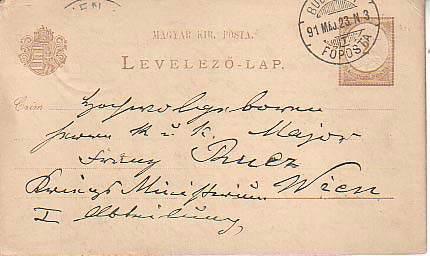 MAGYAR KIR. POSTA.
LEVELEZŐ-LAP.
BUD
91 MÁJ. 23. N. 3
FŐPOSTA
Czim
Hochwolgeboren
Herrn K u. k. Major
Franz
Kriegs Ministerium Wien
I Abteilung